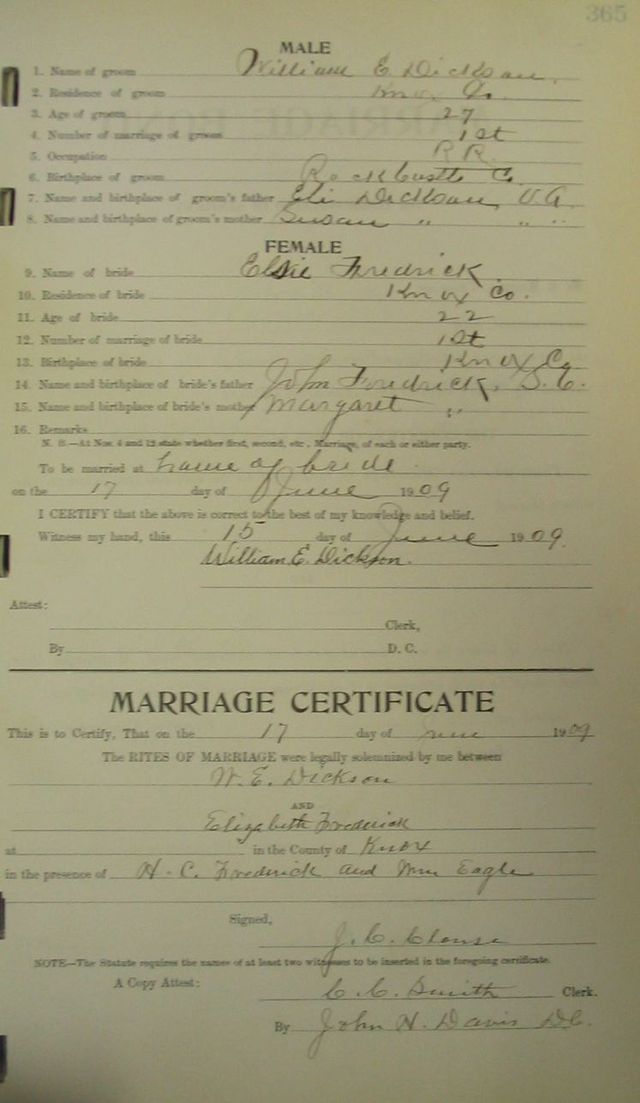 365
MALE
1. Name of groom William E. Dickson
2. Residence of groom Knox Co.
3. Age of groom 27
4. Number of marriage of groom 1st
5. Occupation R R.
6. Birthplace of groom Rockcastle Co.
7. Name and birthplace of groom's father Eli Dickson, V.A.
8. Name and birthplace of groom's mother Susan " " "
FEMALE
9. Name of bride Elsie Fredrick
10. Residence of bride Knox Co.
11. Age of bride 22
12. Number of marriage of bride 1st
13. Birthplace of bride Knox Co
14. Name and birthplace of bride's father John Fredrick, S.C.
15. Name and birthplace of bride's mother Margaret "
16. Remarks
N. B.—At Nos. 4 and 12 state whether first, second, etc., Marriage, of each or either party.
To be married at home of bride
on the 17 day of June 1909
I CERTIFY that the above is correct to the best of my knowledge and belief.
Witness my hand, this 15 day of June 1909.
William E. Dickson.
Attest:
Clerk,
By D. C.
MARRIAGE CERTIFICATE
This is to Certify, That on the 17 day of June 1909
The RITES OF MARRIAGE were legally solemnized by me between
W. E. Dickson
AND
Elizabeth Frederick
at in the County of Knox
in the presence of H. C. Frederick and Eagle
Signed,
J. C.
NOTE—The Statute requires the names of at least two witnesses to be inserted in the foregoing certificate.
A Copy Attest:
C. C. Smith Clerk.
By John H. Davis DC.